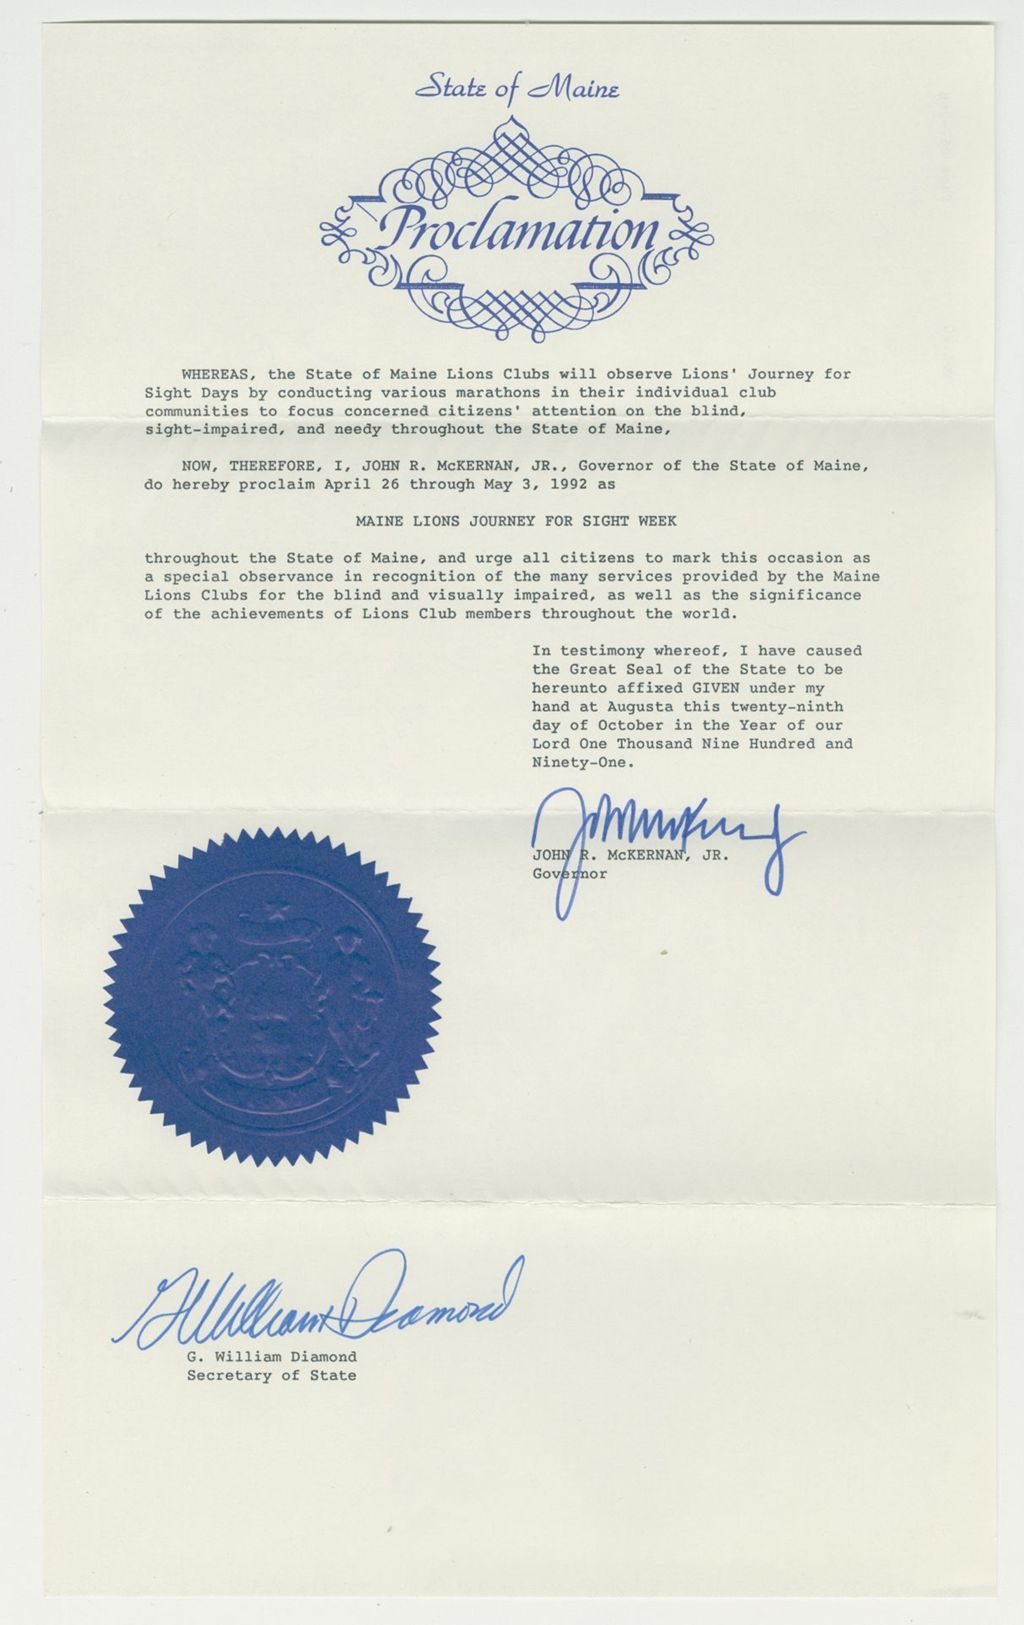 State of Maine
Proclamation
WHEREAS, the State of Maine Lions Clubs will observe Lions' Journey for
Sight Days by conducting various marathons in their individual club
communities to focus concerned citizens' attention on the blind,
sight-impaired, and needy throughout the State of Maine,
NOW, THEREFORE, I, JOHN R. McKERNAN, JR., Governor of the State of Maine,
do hereby proclaim April 26 through May 3, 1992 as
MAINE LIONS JOURNEY FOR SIGHT WEEK
throughout the State of Maine, and urge all citizens to mark this occasion as
a special observance in recognition of the many services provided by the Maine
Lions Clubs for the blind and visually impaired, as well as the significance
of the achievements of Lions Club members throughout the world.
In testimony whereof, I have caused
the Great Seal of the State to be
hereunto affixed GIVEN under my
hand at Augusta this twenty-ninth
day of October in the Year of our
Lord One Thousand Nine Hundred and
Ninety-One.
JOHN R. McKERNAN, JR.
Governor
G William Diamond
G. William Diamond
Secretary of State